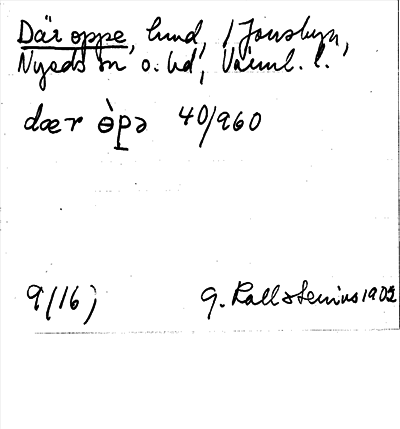 Där oppe, lund, i Jonsbyn,
Nyeds sn o. hd, Värml. l.
dær ɵ̀pə 40/960
9(16)
G. Kallstenius 1902